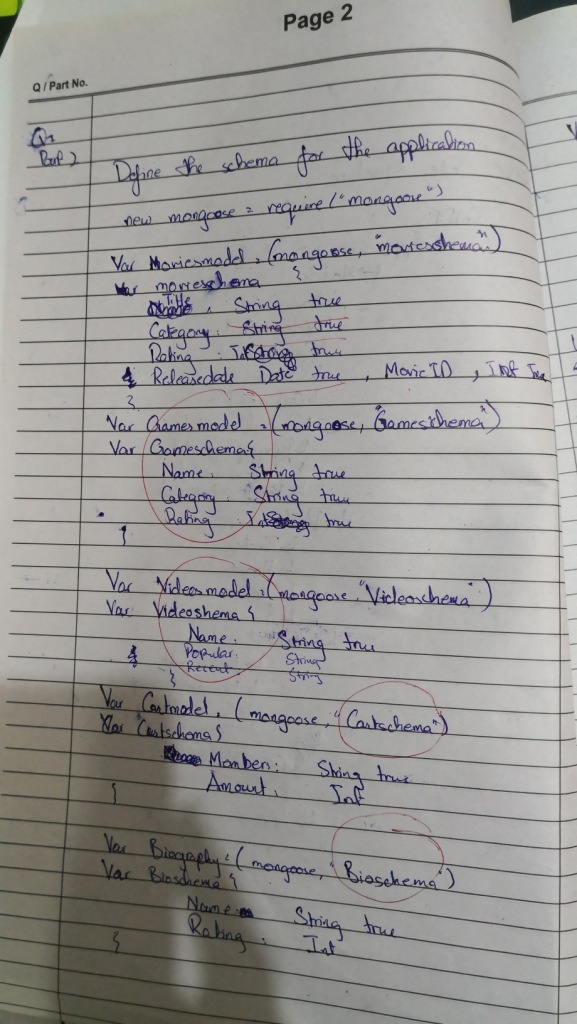 Page 2
Q / Part No.
Q1
Part 2
Define the schema for the application
new mongoose = require ("mongoose")
Var Moviesmodel = (mongoose, "movieschema")
Var movieschema {
Title, String true
Category: String true
Rating : Int true
Releasedate Date true, Movie ID, Int true
}
Var Gamesmodel = (mongoose, "Gameschema")
Var Gameschema {
Name. String true
Category. String true
Rating Int true
}
Var Videosmodel = (mongoose "Videoschema")
Var Videoshema {
Name. String true
Popular. String
Recent String
}
Var Castmodel = (mongoose, "Castschema")
Var Castschema {
Members: String true
Amount. Int
}
Var Biography = (mongoose, "Bioschema")
Var Bioschema {
Name String true
Rating : Int
}